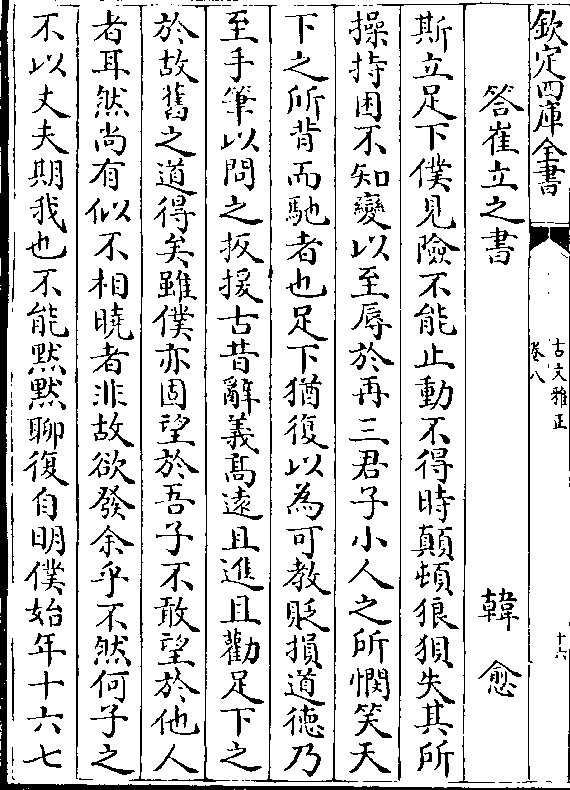 欽定四庫全書
古文雅正
卷八
十六
答崔立之書
韓愈
斯立足下僕見險不能止動不得時顛頓狼狽失其所
操持困不知變以至辱於再三君子小人之所憫笑天
下之所背而馳者也足下猶復以為可教貶損道德乃
至手筆以問之扳援古昔辭義髙遠且進且勸足下之
於故舊之道得矣雖僕亦固望於吾子不敢望於他人
者耳然尚有似不相曉者非故欲發余乎不然何子之
不以丈夫期我也不能黙黙聊復自明僕始年十六七